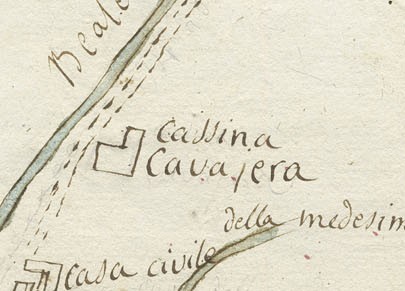 Beale
Cassina
Cavajera
della medesim
Casa civile